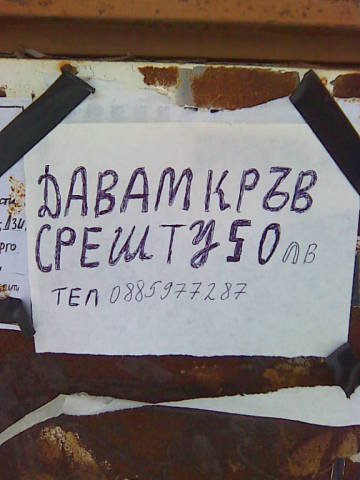 ДАВАМ КРЪВ
СРЕШТУ 50 ЛВ
ТЕЛ 0885977287